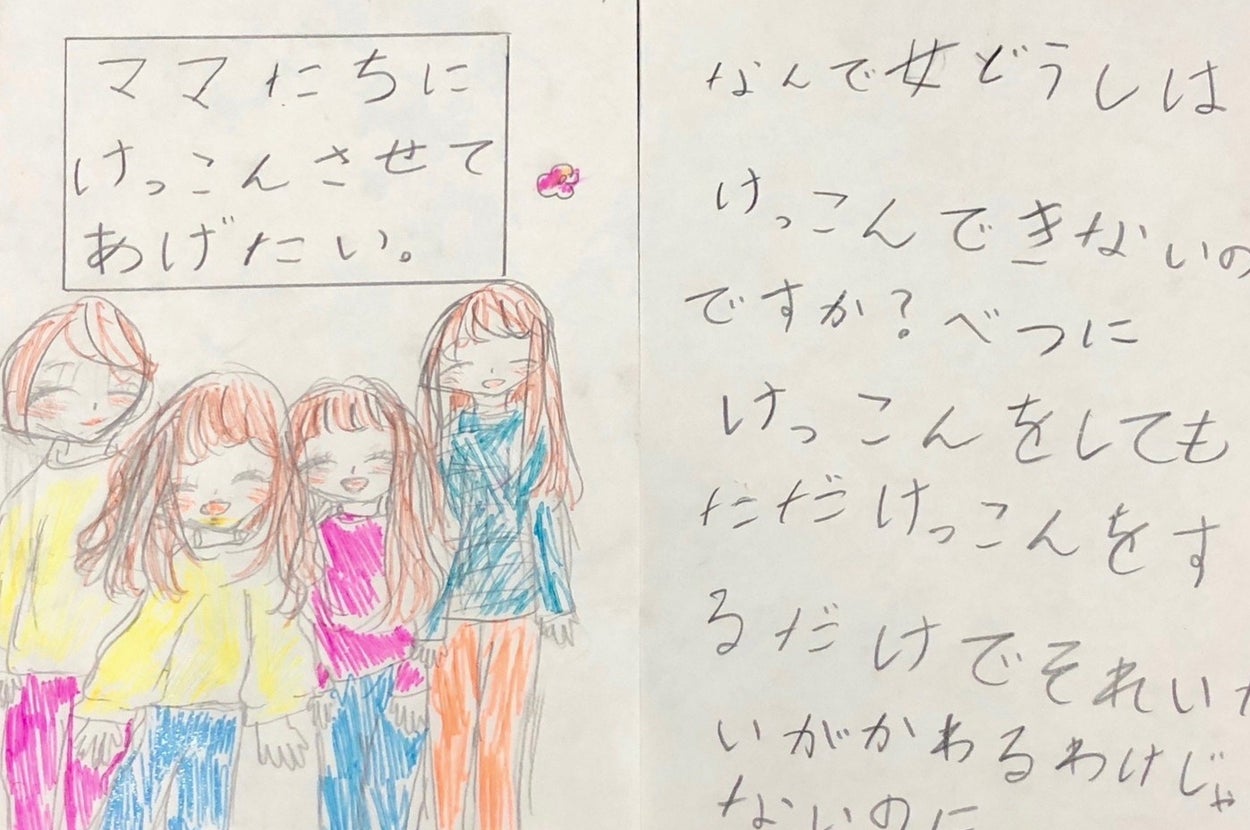 ママたちに
けっこんさせて
あげたい。
なんで女どうしは
けっこんできないの
ですか?べつに
けっこんをしても
ただけっこんをす
るだけでそれい
いがかわるわけじゃ
ないのに